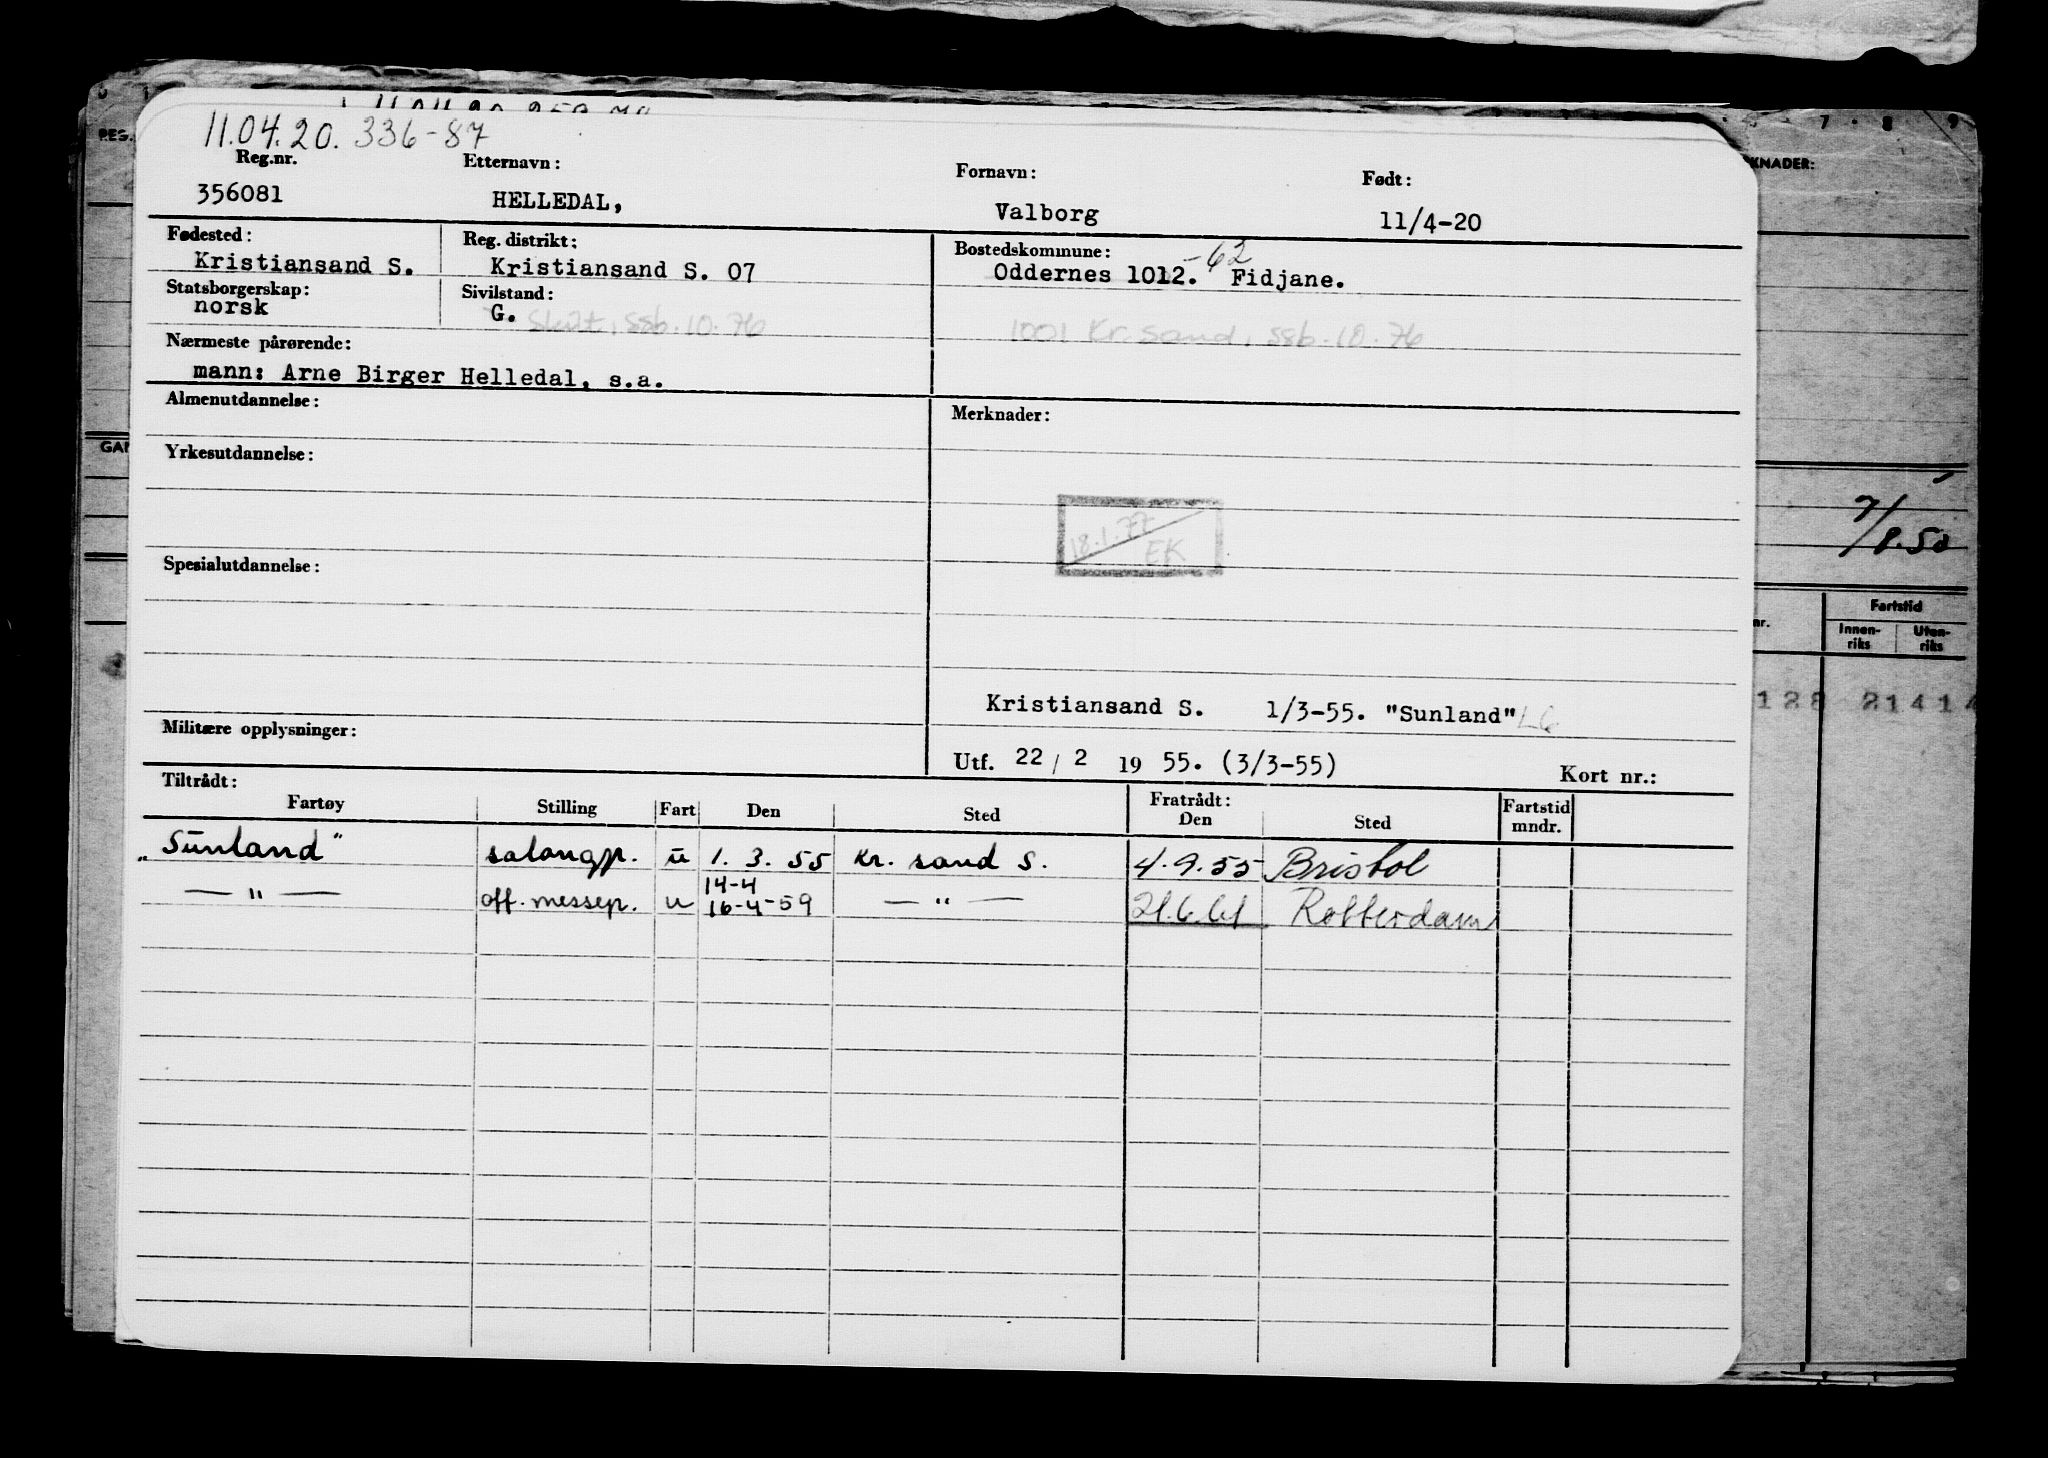 11.04.20. 336-87
Reg.nr. Etternavn: Fornavn: Født:
356081 HELLEDAL, Valborg 11/4-20
Fødested: Reg. distrikt: Bostedskommune:
Kristiansand S. Kristiansand S. 07 Oddernes 1012. -62 Fidjane.
Statsborgerskap: Sivilstand:
norsk G. skilt, ssb. 10.76 1001 Kr.sand, ssb. 10.76
Nærmeste pårørende:
mann: Arne Birger Helledal, s.a.
Almenutdannelse: Merknader:
Yrkesutdannelse:
18.1.77
EK
Spesialutdannelse:
Kristiansand S. 1/3-55. "Sunland"
Militære opplysninger:
Utf. 22 / 2 19 55. (3/3-55) Kort nr.:
Tiltrådt: Fratrådt:
Fartøy Stilling Fart Den Sted Den Sted Fartstid mndr.
„Sunland" salongp. u 1. 3. 55 Kr. sand S. 4.9.55 Bristol
— " — off. messep. u 14-4 16-4-59 — " — 21.6.61 Rotterdam
REG.
KNADER:
7 8 9
GAR
7/8.50
nr. Fartstid
Innen-riks Uten-riks
128 21414